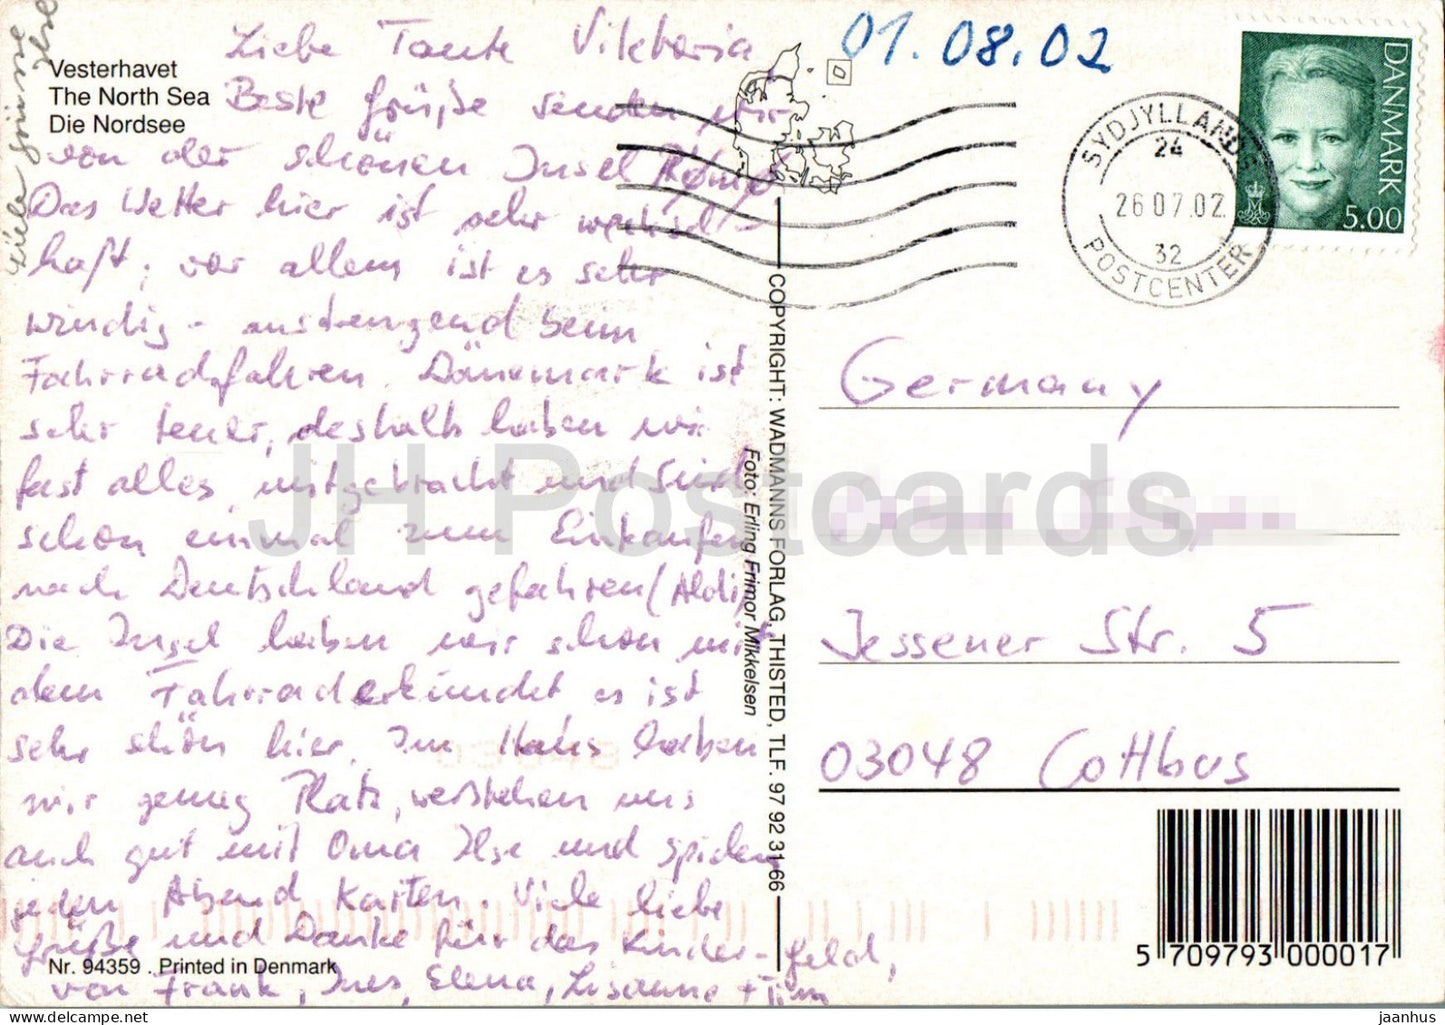 Vesterhavet
The North Sea
Die Nordsee
Viele Grüsse
Ilse
01.08.02
Liebe Tante Viktoria
Beste Grüße senden wir
von der schönen Insel Rømø.
Das Wetter hier ist sehr wechsel-
haft, vor allem ist es sehr
windig - anstrengend beim
Fahrradfahren. Dänemark ist
sehr teuer, deshalb haben wir
fast alles mitgebracht und sind
schon einmal zum Einkaufen
nach Deutschland gefahren (Aldi).
Die Insel haben wir schon mit
dem Fahrrad erkundet es ist
sehr schön hier. Im Haus haben
wir genug Platz, verstehen uns
auch gut mit Oma Ilse und spielen
jeden Abend Karten. Viele liebe
Grüße und Danke für das Kinder-geld,
von Frank, Ines, Elena, Lisanne + Tim
Nr. 94359 . Printed in Denmark
COPYRIGHT: WADMANNS FORLAG, THISTED, TLF. 97 92 31 66
Foto: Erling Frimor Mikkelsen
SYDJYLLANDS
24
26.07.02
32
POSTCENTER
DANMARK
5.00
Germany
Jessener Str. 5
03048 Cottbus
5 709793 000017
JH Postcards
jaanhus @ delcampe.net